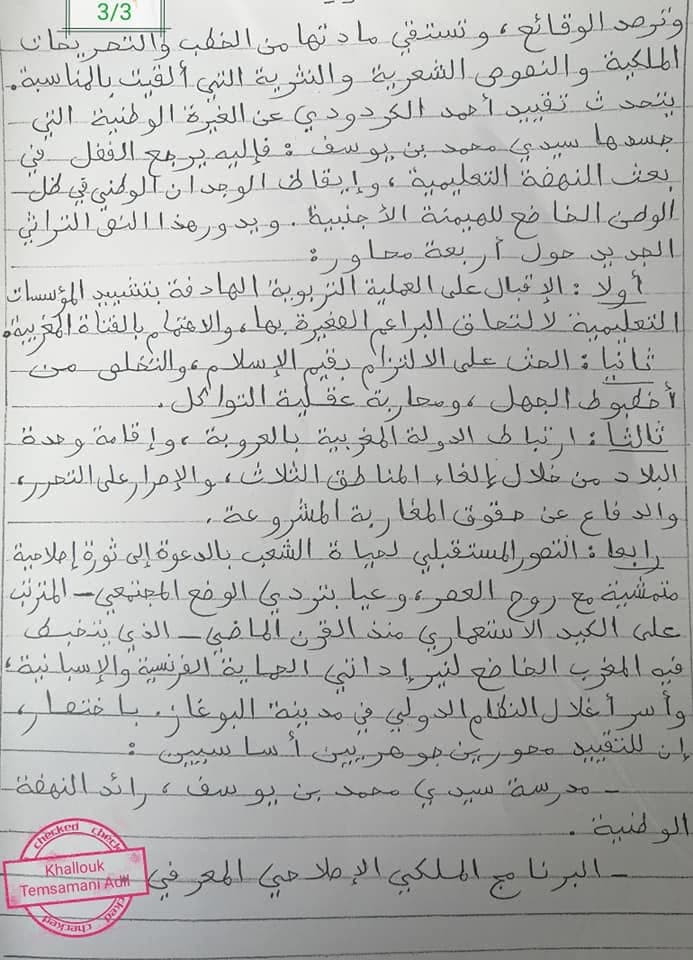 3/3
وترصد الوقائع، وتستقي مادتها من الخطب والتصريحات
الملكية والنصوص الشعرية والنثرية التي ألقيت بالمناسبة.
يتحدث تقييد أحمد الكردودي عن الغيرة الوطنية التي
جسدها سيدي محمد بن يوسف: فإليه يرجع الفضل في
بعث النهضة التعليمية، وإيقاظ الوجدان الوطني في ظل
الوطن الخاضع للهيمنة الأجنبية. ويدور هذا النص التراثي
الجديد حول أربعة محاور:
أولا: الإقبال على العملية التربوية الهادفة بتشييد المؤسسات
التعليمية لالتحاق البراعم الصغيرة بها، والاهتمام بالفتاة المغربية.
ثانيا: الحث على الالتزام بقيم الإسلام، والتخلص من
أخطبوط الجهل، ومحاربة عقلية التواكل.
ثالثا: ارتباط الدولة المغربية بالعروبة، وإقامة وحدة
البلاد من خلال إلغاء المناطق الثلاث، والإصرار على التحرر،
والدفاع عن حقوق المغاربة المشروعة.
رابعا: التصور المستقبلي لحياة الشعب بالدعوة إلى ثورة إصلاحية
متمشية مع روح العصر، وعيا بتردي الوضع المجتمعي - المترتب
على الكيد الاستعماري منذ القرن الماضي - الذي يتخبط
فيه المغرب الخاضع لنير إدانتي الحماية الفرنسية والإسبانية،
وأسر أغلال النظام الدولي في مدينة البوغاز. باختصار،
إن للتقييد محورين جوهريين أساسيين:
- مدرسة سيدي محمد بن يوسف، رائد النهضة
الوطنية.
- البرنامج الملكي الإصلاحي المعرفي
checked checked
Khallouk
Temsamani Adil
checked